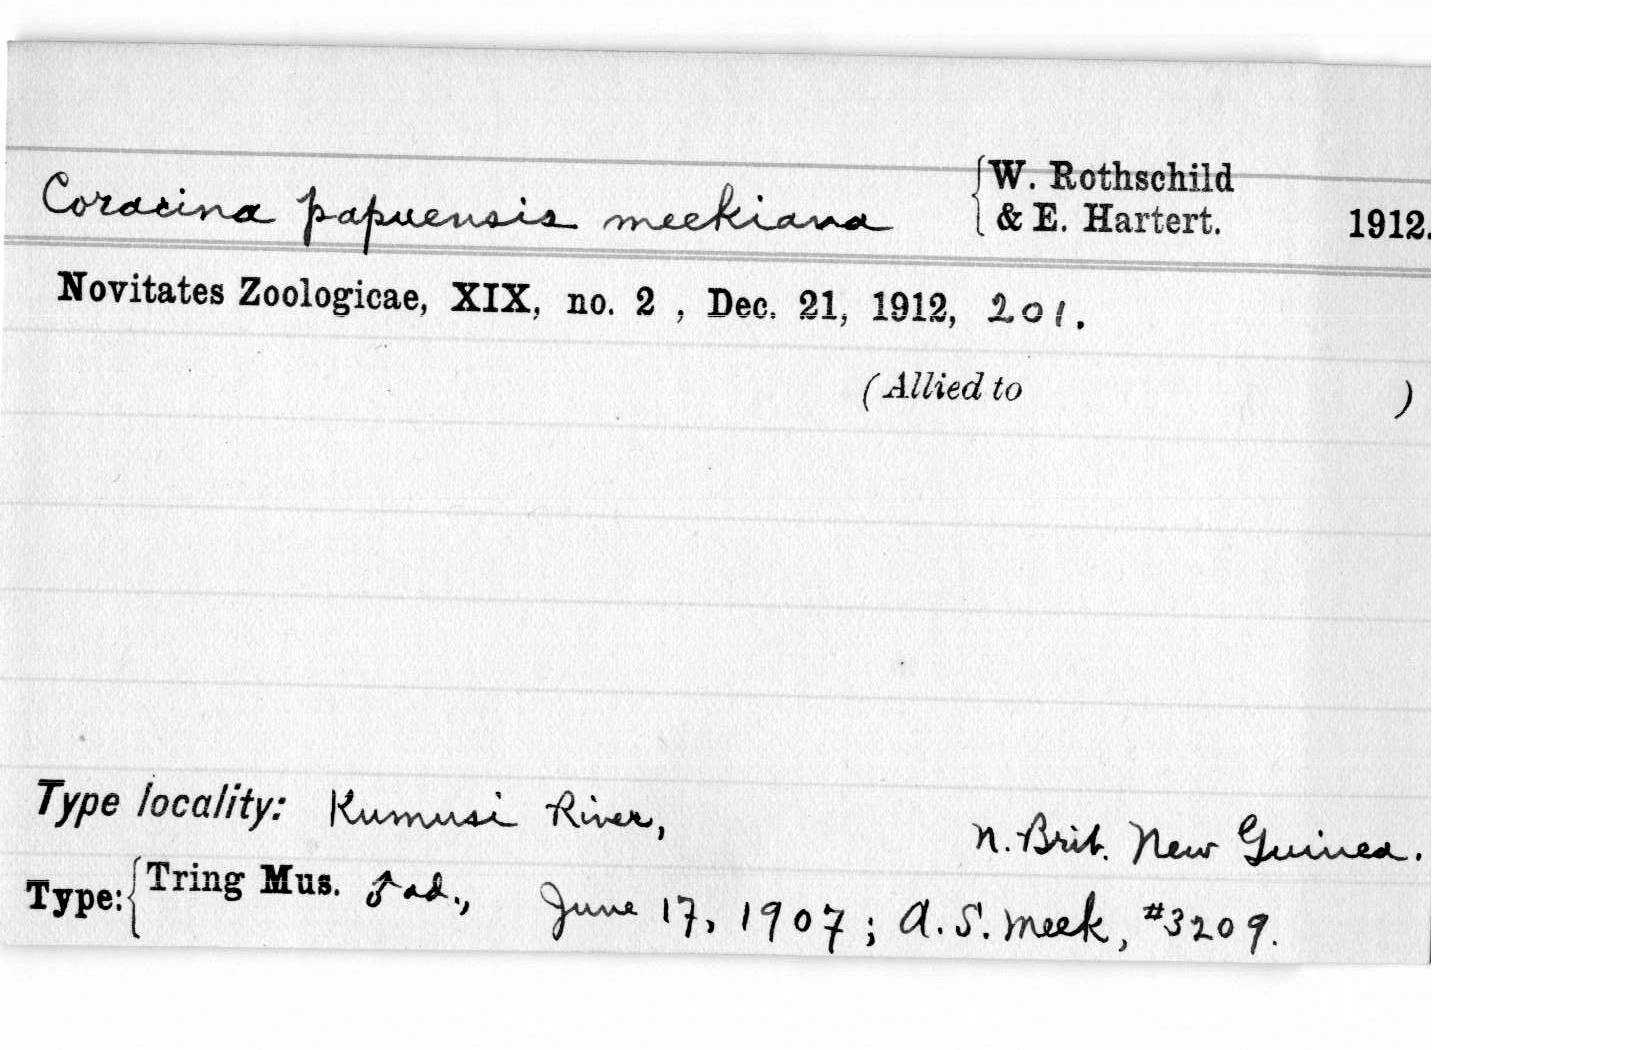 Coracina papuensis meekiana { W. Rothschild
& E. Hartert. 1912.
Novitates Zoologicae, XIX, no. 2 , Dec. 21, 1912, 201.
(Allied to )
Type locality: Kumusi River, N. Brit. New Guinea.
Type: { Tring Mus. ♂ ad., June 17, 1907; A. S. Meek, #3209.